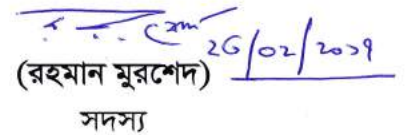 26/02/2019
(রহমান মুরশেদ)
সদস্য